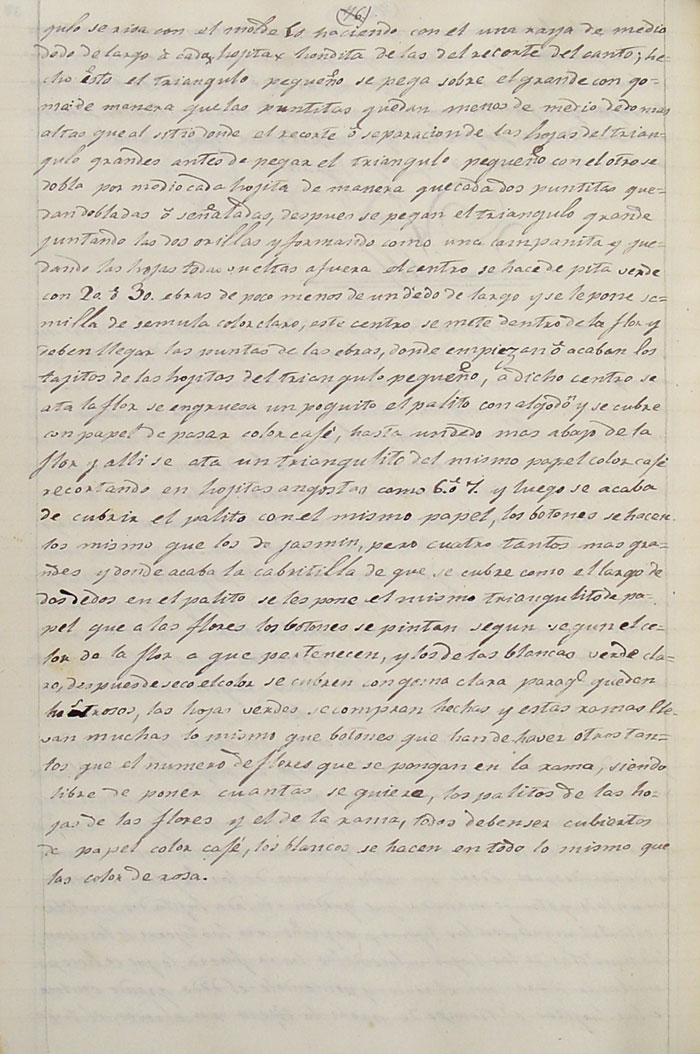 (76)
gulo se risa con el molde Lo haciendo con el una raya de medio
dedo de largo á cada hojita hondita de las del recorte del canto; he-
cho ésto el triangulo pequeño se pega sobre el grande con go-
ma: de manera que las puntitas quedan menos de medio dedo mas
altas que al sitio donde el recorte ó separacion de las hojas del trian-
gulo grandes antes de pegar el triangulo pequeño con el otro se
dobla por medio cada hojita de manera que cada dos puntitas que-
dan dobladas ó señaladas, despues se pegan el triangulo grande
juntando las dos orillas y formando como una campanita y que-
dando las hojas todas sueltas afuera el centro se hace de pita verde
con 20 ó 30. ebras de poco menos de un dedo de largo y se le pone se-
milla de semula color claro, este centro se mete dentro de la flor y
deben llegar las puntas de las ebras, donde empiezan ó acaban los
tajitos de las hojitas del triangulo pequeño, a dicho centro se
ata la flor se engruesa un poquito el palito con algodon y se cubre
con papel de pasar color café, hasta un dedo mas abajo de la
flor y alli se ata un triangulito del mismo papel color café
recortando en hojitas angostas como 6. ó 7. y luego se acaba
de cubrir el palito con el mismo papel, los botones se hacen
los mismo que los de jasmin, pero cuatro tantos mas gran-
des y donde acaba la cabritilla de que se cubre como el largo de
dos dedos en el palito se les pone el mismo triangulito de pa-
pel que a las flores los botones se pintan segun segun el co-
lor de la flor a que pertenecen, y los de las blancas verde cla-
ro, despues de seco el color se cubren con goma clara para q.e queden
lustrosos, las hojas verdes se compran hechas y estas ramas lle-
van muchas lo mismo que botones que han de haver otros tan-
tos que el numero de flores que se pongan en la rama, siendo
libre de poner cuantas se quiere, los palitos de las ho-
jas de las flores y el de la rama, todos deben ser cubiertos
de papel color café, los blancos se hacen en todo lo mismo que
las color de rosa.